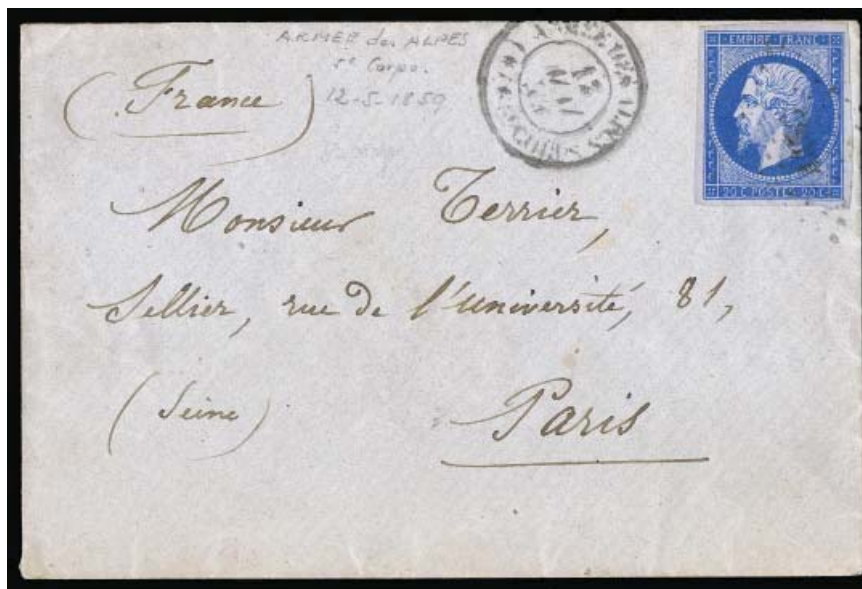 ARMEE des ALPES
Corps.
12-5-1859
(France)
ARMEE DES ALPES
12
MAI
EMPIRE FRANC
20 C POSTES 20 C
Monsieur Terrier,
Sellier, rue de l'université, 81,
(Seine)
Paris